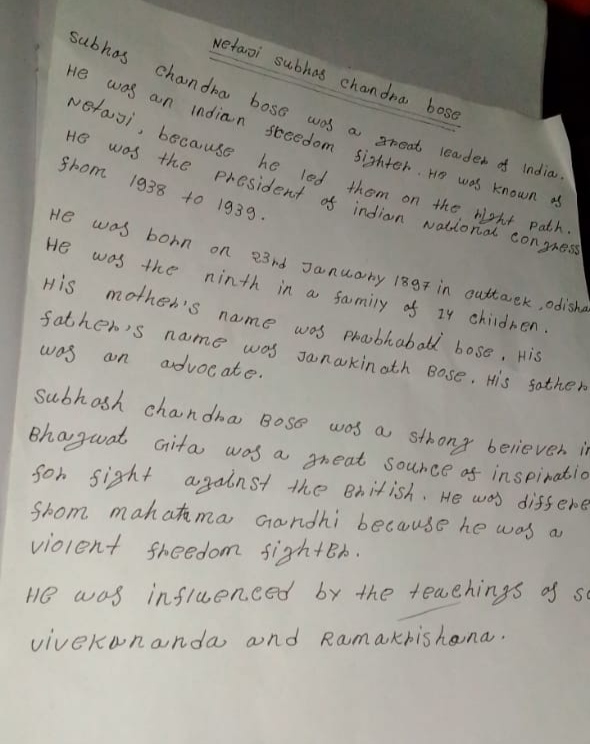 Netaji subhas chandra bose
Subhas chandra bose was a great leader of India.
He was an indian freedom fighter. He was known as
Netaji, because he led them on the right path.
He was the president of indian National congress
from 1938 to 1939.
He was born on 23rd January 1897 in cuttack, odisha
He was the ninth in a family of 14 children.
His mother's name was Prabhabati bose. His
father's name was Janakinath Bose. His father
was an advocate.
Subhash chandra Bose was a strong believer in
Bhagwat Gita was a great source of inspiratio
for fight against the British. He was differe
from mahatma Gandhi because he was a
violent freedom fighter.
He was influenced by the teachings of
vivekananda and Ramakrishana.